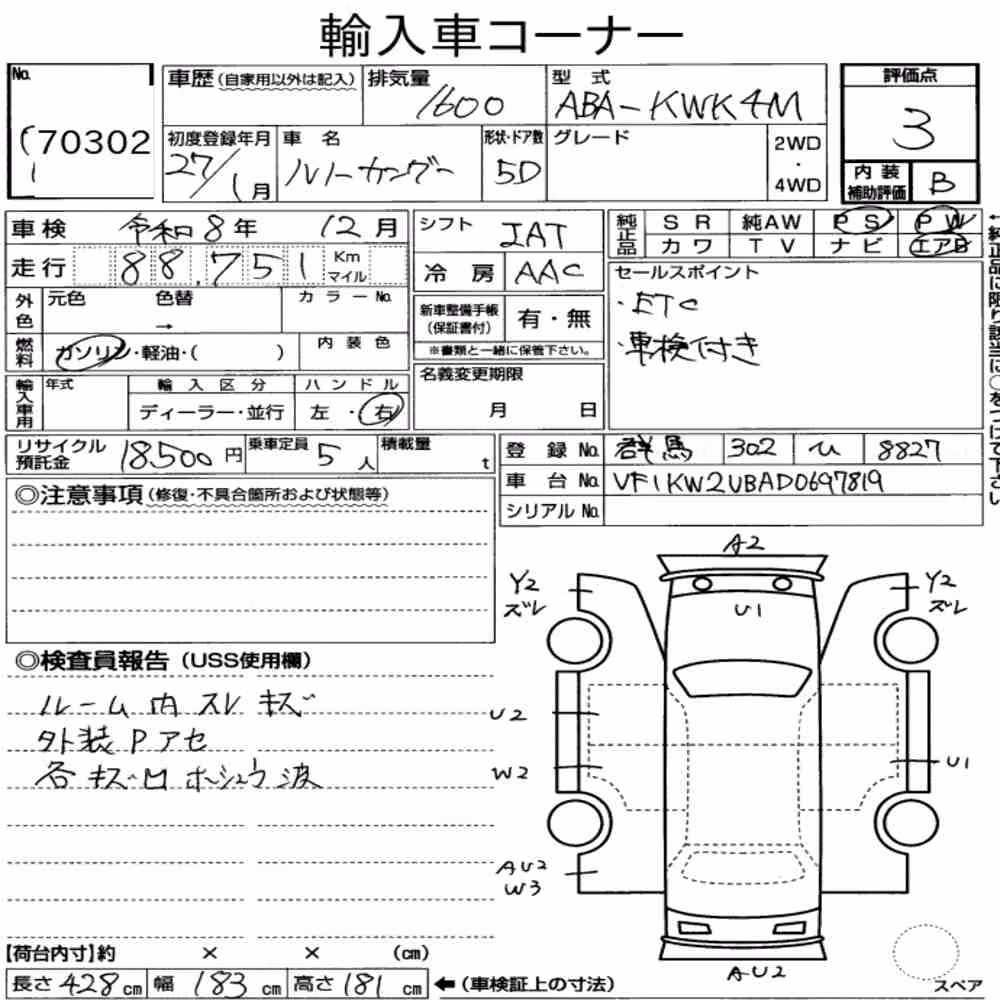 輸入車コーナー
No.
70302
車歴(自家用以外は記入)
排気量
1600
型式
ABA-KWK4M
評価点
3
初度登録年月
27/1月
車名
ルノーカングー
形状・ドア数
5D
グレード
2WD
・
4WD
内装
補助評価
B
車検
令和8年
12月
シフト
IAT
純正品
SR
純AW
PS
PW
カワ
TV
ナビ
エアB
走行
88,751
Km
マイル
冷房
AAC
セールスポイント
・ETC
・車検付き
←純正品に限り該当に○をつけて下さい
外色
元色
色替
→
カラーNo.
新車整備手帳
(保証書付)
有・無
※書類と一緒に保管下さい。
燃料
ガソリン・軽油・( )
内装色
名義変更期限
月 日
輸入車用
年式
輸入区分
ディーラー・並行
ハンドル
左・右
リサイクル
預託金
18500円
乗車定員
5人
積載量
t
登録No.
群馬
302
ひ
8827
車台No.
VF1KW2UBAD0697819
シリアルNo.
◎注意事項(修復・不具合箇所および状態等)
◎検査員報告(USS使用欄)
ルーム内スレキズ
外装Pアセ
各キズ凹ホーシュウ波
A2
Y2
ズレ
U1
Y2
ズレ
U2
W2
U1
AU2
W3
AU2
スペア
【荷台内寸】約 × × (cm)
長さ428cm
幅183cm
高さ181cm
←(車検証上の寸法)